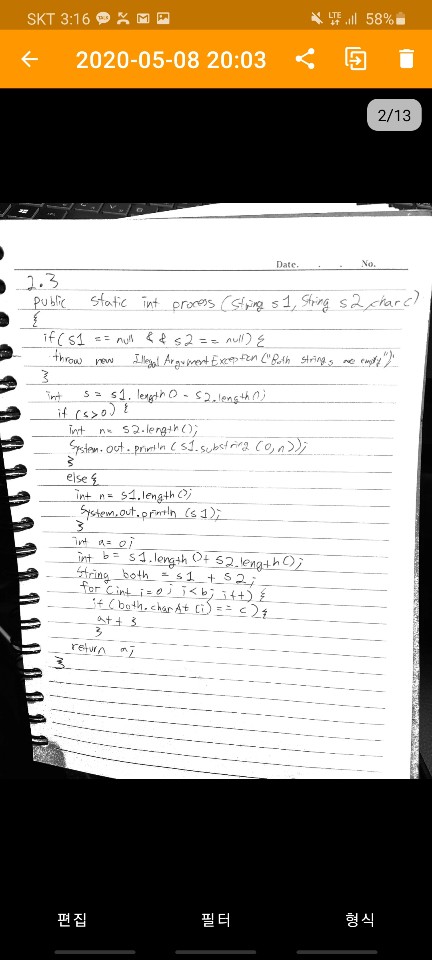 SKT 3:16
LTE
58%
2020-05-08 20:03
2/13
Date. . . No.
2.3
public static int process (String s1, String s2, char c)
{
if( s1 == null && s2 == null) {
throw new IllegalArgumentException ("Both strings are empty")
}
int s = s1.length() - s2.length();
if (s>0) {
int n= s2.length();
System.out.println (s1.substring (0,n));
}
else {
int n = s1.length();
System.out.println (s1);
}
int a= 0;
int b= s1.length()+ s2.length();
String both = s1 + s2;
for (int i=0; i<b; i++) {
if (both.charAt (i) == c) {
a++ }
}
return a;
}
편집
필터
형식